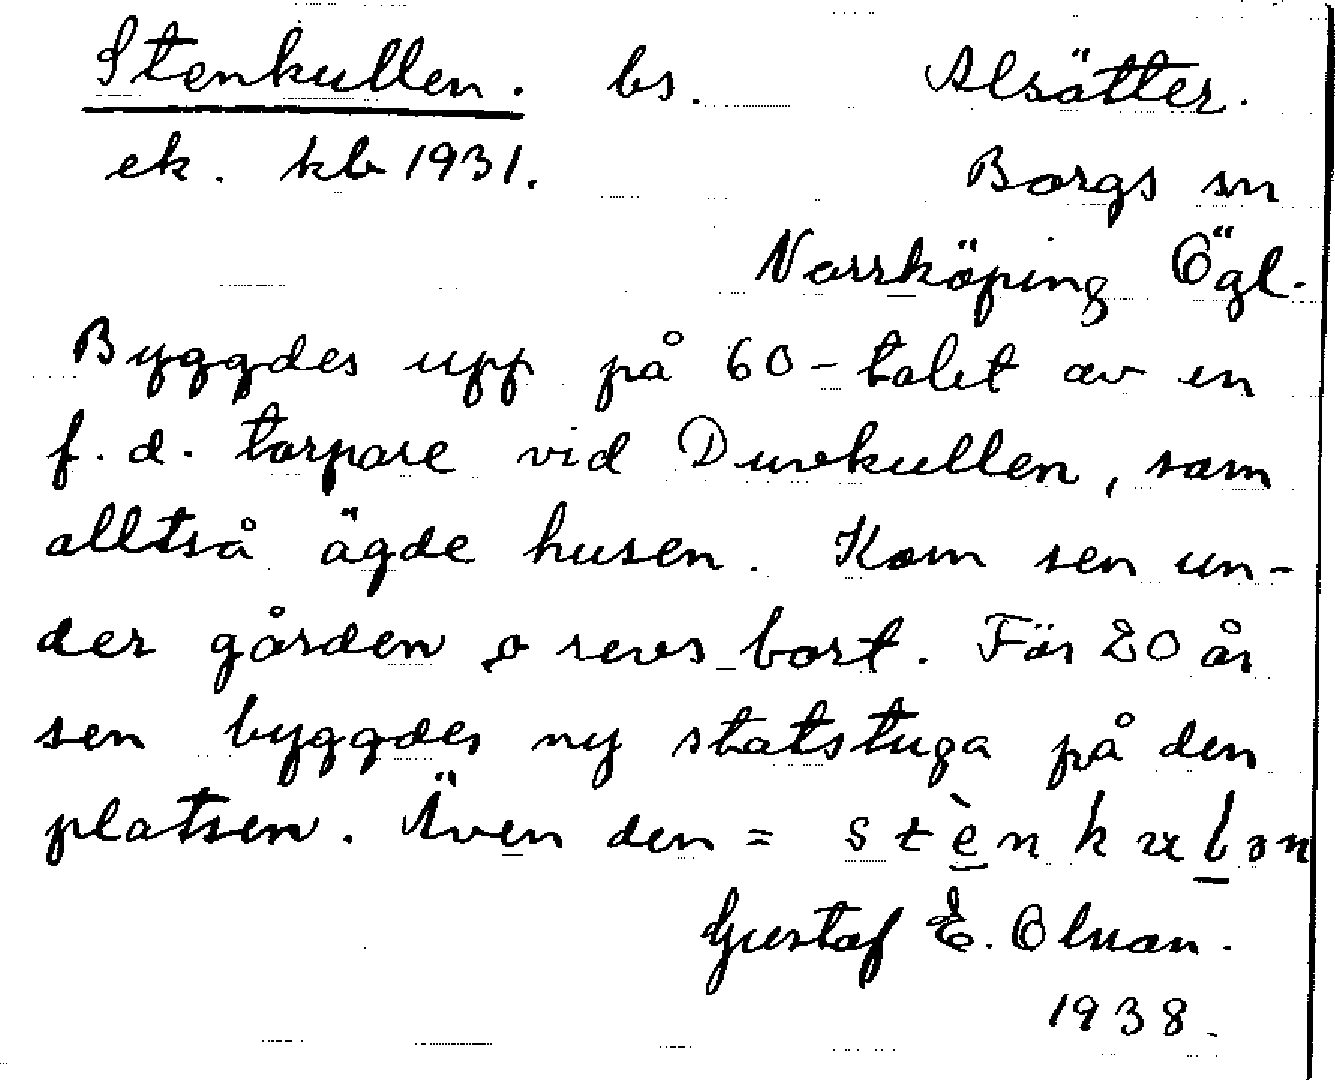 Stenkullen. bs. Alsätter.
ek. kb 1931. Borgs sn
Norrköping Ögl.
Byggdes upp på 60-talet av en
f.d. torpare vid Duvkullen, som
alltså ägde husen. Kom sen un-
der gården o revs bort. För 20 år
sen byggdes ny statstuga på den
platsen. Även den = stènkulən
Gustaf E. Olson.
1938.